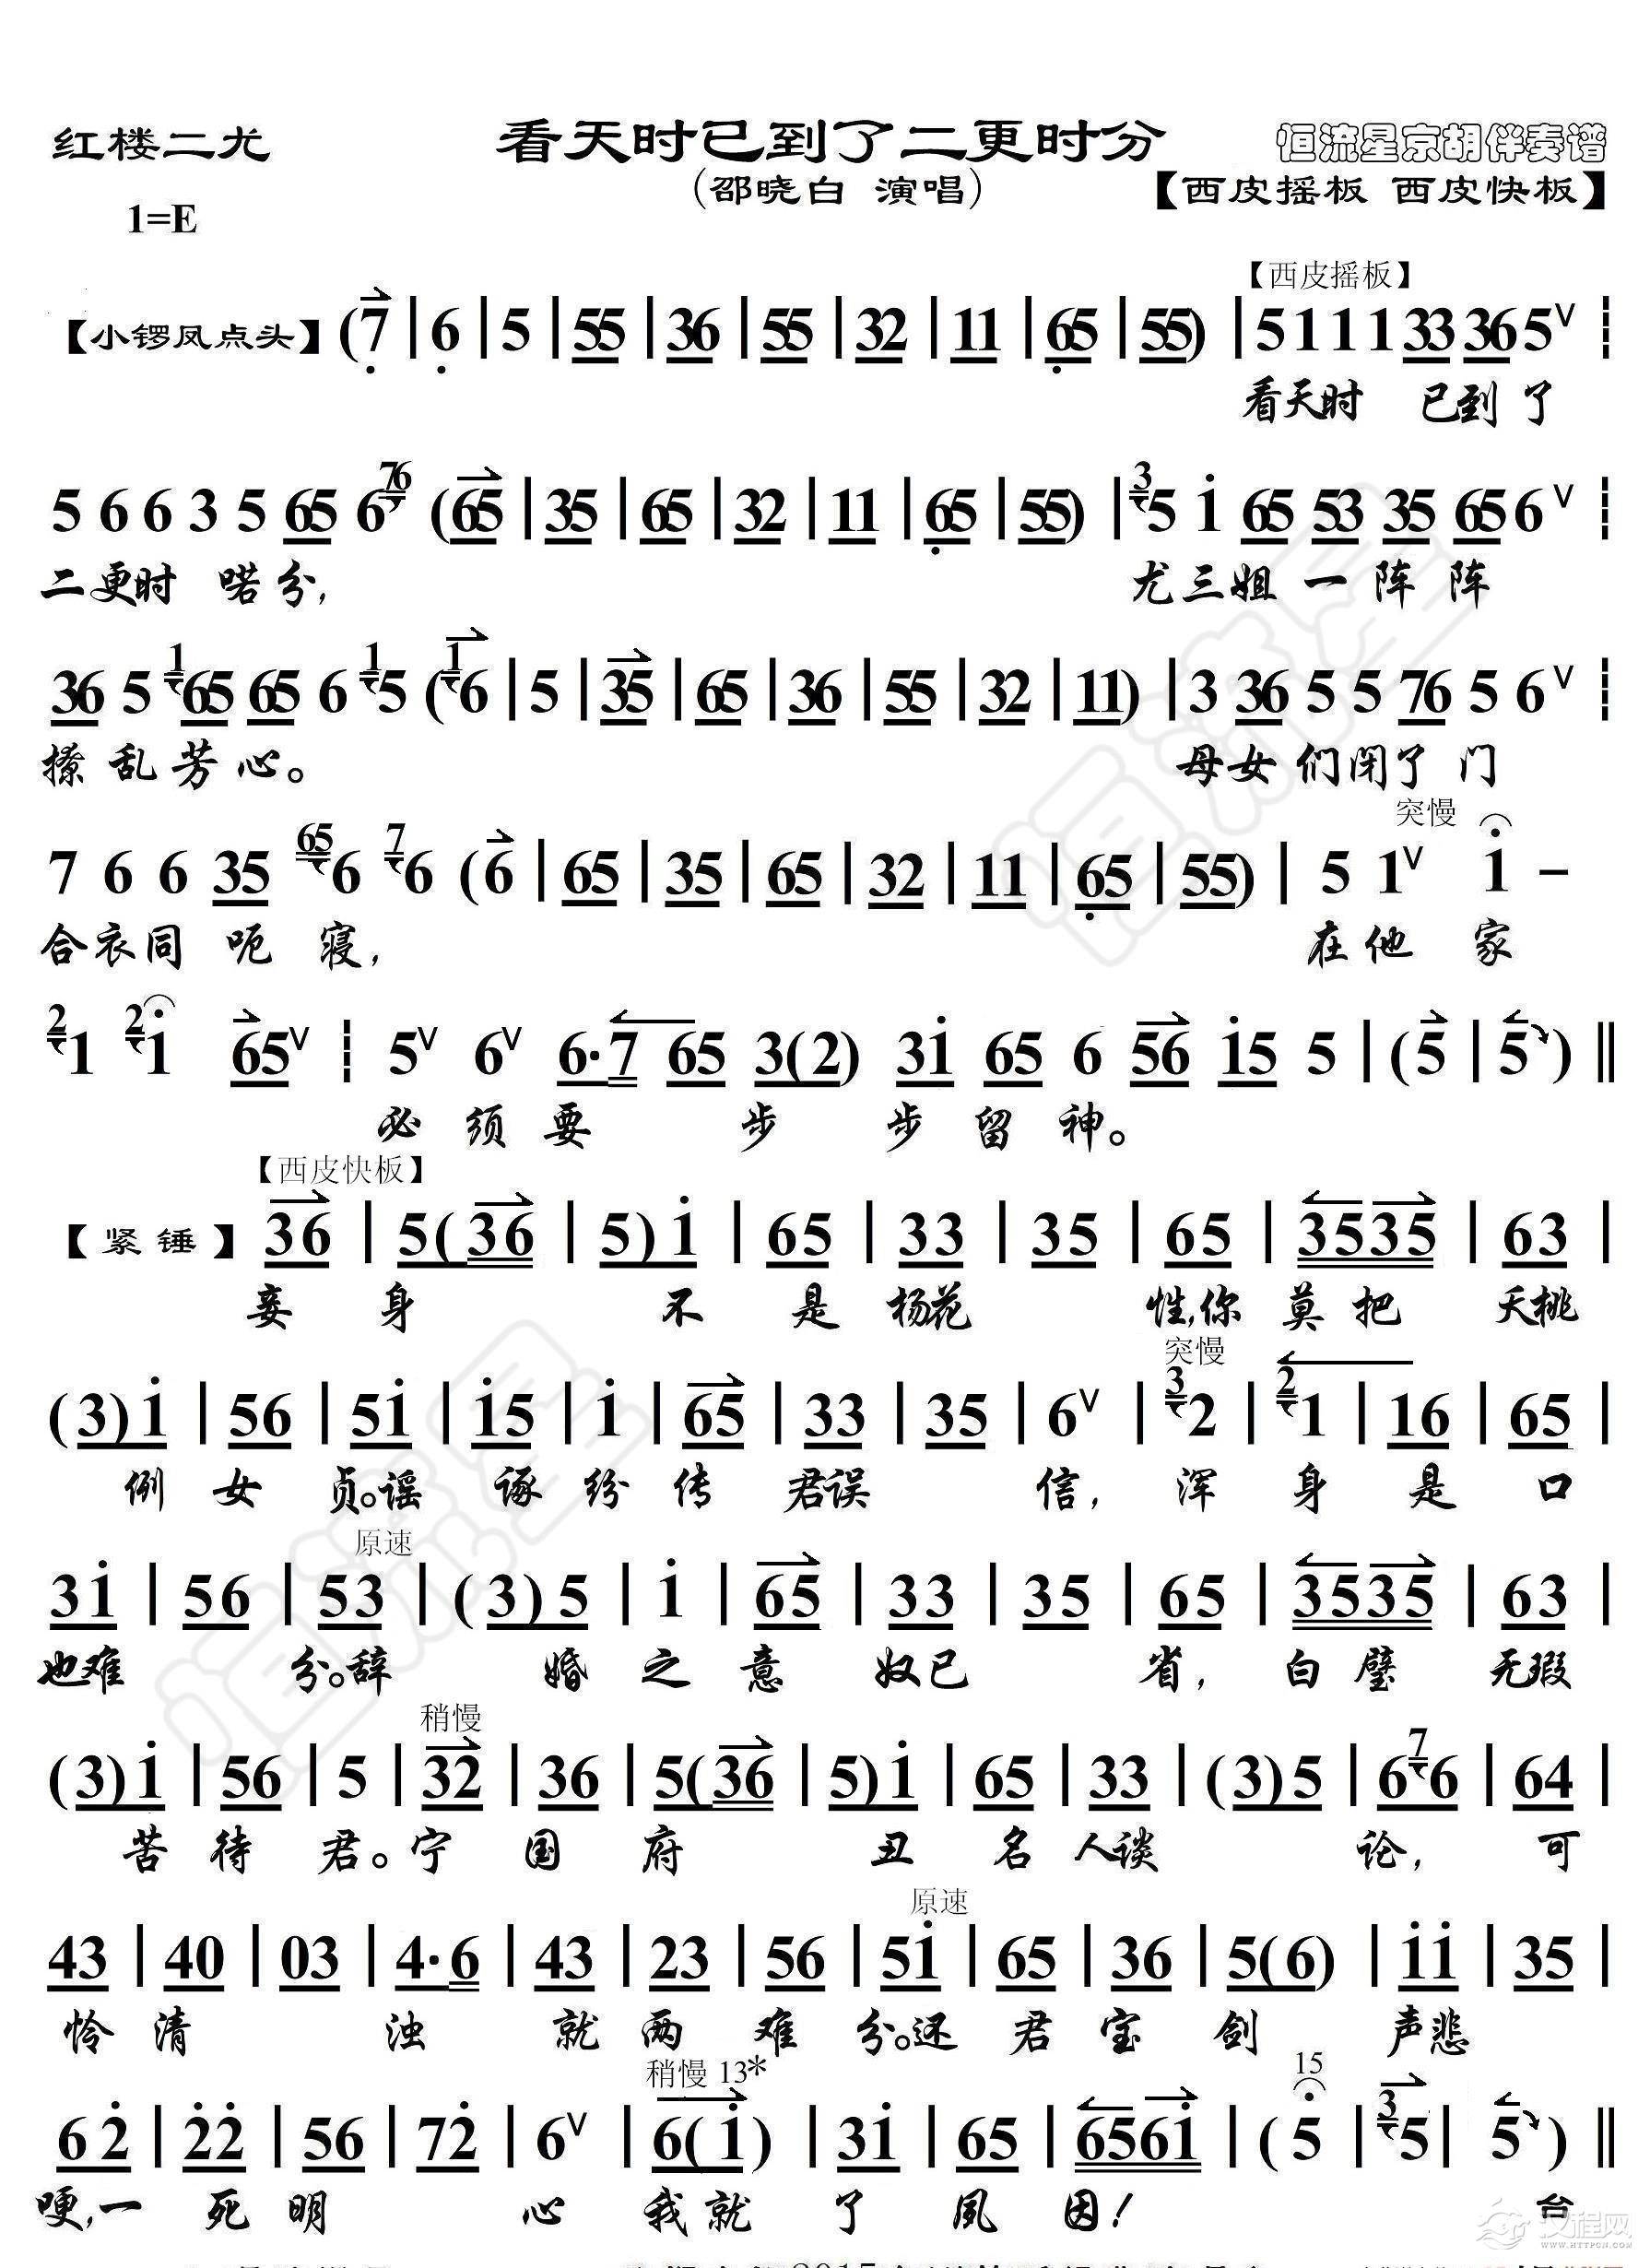 红楼二尤 看天时已到了二更时分 恒流星京胡伴奏谱
(邵晓白 演唱) 【西皮摇板 西皮快板】
1=E
【西皮摇板】
【小锣凤点头】(7|6|5|55|36|55|32|11|65|55)|5 1 1 1 33 36 5 V
看天时 已到了
5 6 6 3 5 65 6 76 (65|35|65|32|11|65|55)|3 5 1 65 53 35 65 6 V
二更时 喏分, 尤三姐一阵阵
36 5 1 65 65 6 1 5 (1 6|5|35|65|36|55|32|11)|3 36 5 5 76 5 6 V
撩乱芳心。 母女们闭了门
突慢
7 6 6 35 65 6 7 6 (6|65|35|65|32|11|65|55)|5 1 V 1 –
合衣同呃寝, 在他家
2 1 2 1 65 V 5 V 6 V 6·7 65 3(2) 31 65 6 56 15 5|(5|5)‖
必须要步步留神。
【西皮快板】
【紧锤】36|5(36|5)1|65|33|35|65|3535|63|
妾身不是杨花性,你莫把夭桃
突慢
(3)1|56|51|15|1|65|33|35|6 V|3 2|2 1|16|65|
例女贞。谣诼纷传君误信,浑身是口
原速
31|56|53|(3)5|1|65|33|35|65|3535|63|
也难分。辞婚之意奴已省,白璧无瑕
稍慢
(3)1|56|5|32|36|5(36|5)1|65|33|(3)5|6 7 6|64|
苦待君。宁国府丑名人谈论,可
原速
43|40|03|4·6|43|23|56|51|65|36|5(6)|11|35|
怜清浊就两难分。还君宝剑声悲
稍慢 13* 15
62|22|56|72|6 V|6(1)|31|65|6561|(5|3 5|5)‖
哽,一死明心我就了夙因! 台
汉程网
WWW.HTTPCN.COM